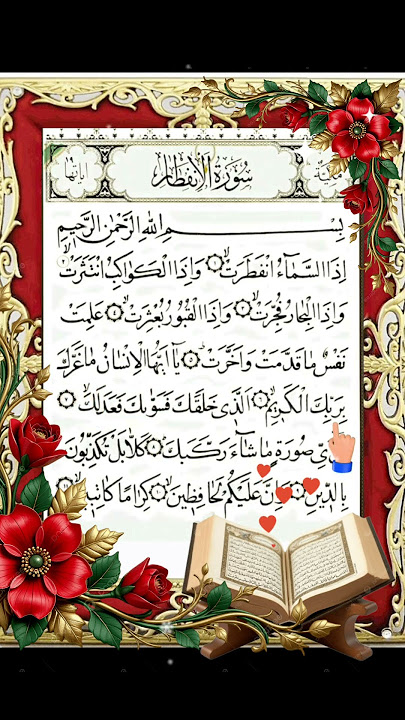 سُورَةُ الْاِنْفِطَارِ
اٰيَاتُهَا ١٩
بِسْمِ اللهِ الرَّحْمٰنِ الرَّحِيمِ
اِذَا السَّمَاءُ انْفَطَرَتْ ١ وَاِذَا الْكَوَاكِبُ انْتَثَرَتْ ٢
وَاِذَا الْبِحَارُ فُجِّرَتْ ٣ وَاِذَا الْقُبُورُ بُعْثِرَتْ ٤ عَلِمَتْ
نَفْسٌ مَا قَدَّمَتْ وَاَخَّرَتْ ٥ يَا اَيُّهَا الْاِنْسَانُ مَا غَرَّكَ
بِرَبِّكَ الْكَرِيمِ ٦ اَلَّذِي خَلَقَكَ فَسَوّٰيكَ فَعَدَلَكَ ٧
صُورَةٍ مَا شَاءَ رَكَّبَكَ ٨ كَلَّا بَلْ تُكَذِّبُونَ
بِالدِّينِ ٩ وَاِنَّ عَلَيْكُمْ لَحَافِظِينَ ١٠ كِرَامًا كَاتِبِينَ